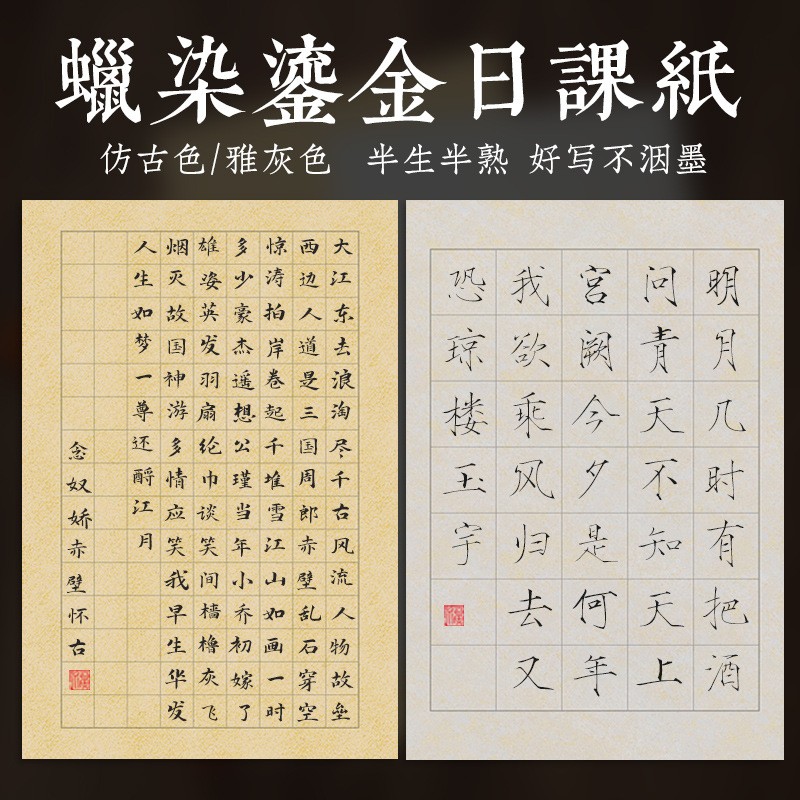 蠟染鎏金日課紙
仿古色/雅灰色 半生半熟 好写不洇墨
大江东去浪淘尽千古风流人物故垒
西边人道是三国周郎赤壁乱石穿空
惊涛拍岸卷起千堆雪江山如画一时
多少豪杰遥想公瑾当年小乔初嫁了
雄姿英发羽扇纶巾谈笑间樯橹灰飞
烟灭故国神游多情应笑我早生华发
人生如梦一尊还酹江月
念奴娇赤壁怀古
明月几时有把酒
问青天不知天上
宫阙今夕是何年
我欲乘风归去又
恐琼楼玉宇